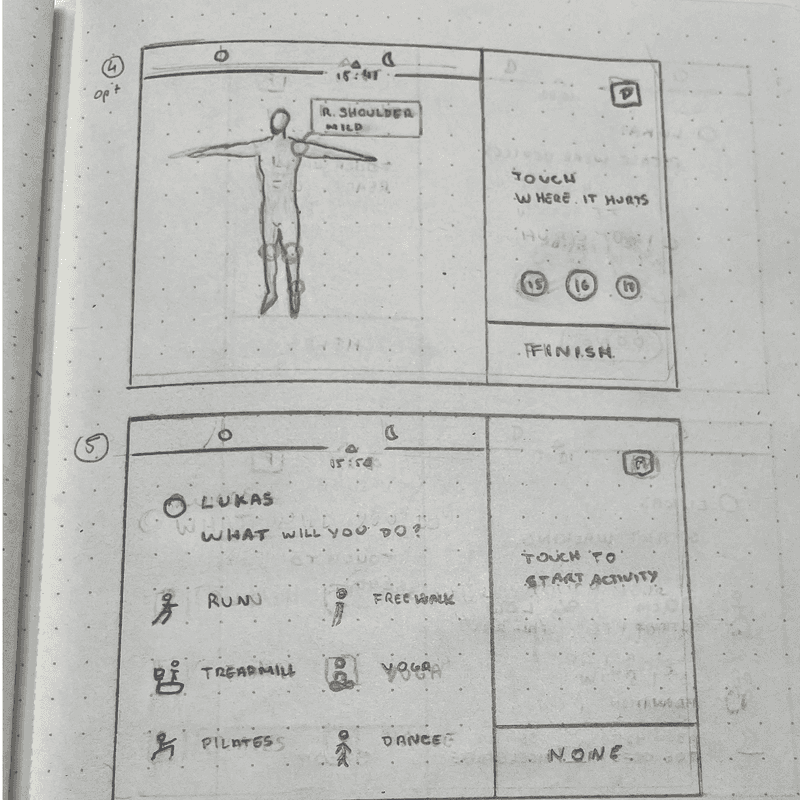 4
OPT
15:41
R. SHOULDER
MILD
TOUCH
WHERE IT HURTS
15 16
FINISH
5
15:50
LUKAS
WHAT WILL YOU DO?
RUN FREE WALK
TREADMILL YOGA
PILATES DANCE
TOUCH TO
START ACTIVITY
NONE